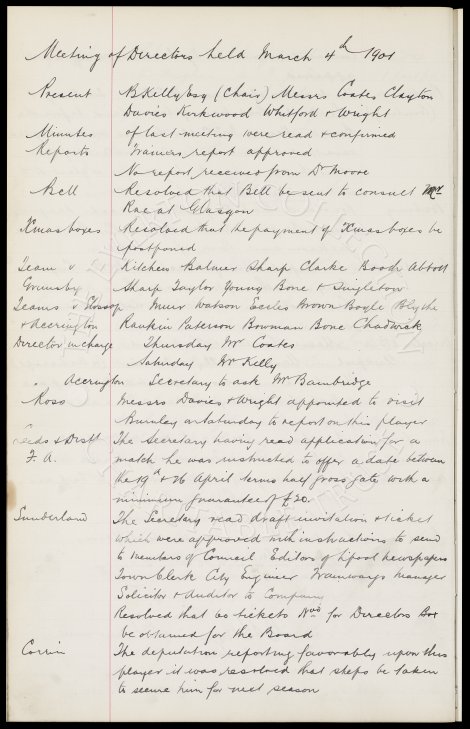 Meeting of Directors held March 4th 1901
Present B Kelly Esq (Chair) Messrs Coates Clayton
Davies Kirkwood Whitford & Wright
Minutes of last meeting were read & confirmed
Reports Trainers report approved
No report received from Dr Moore
Bell Resolved that Bell be sent to consult Mr
Rae at Glasgow
Xmas boxes Resolved that the payment of Xmas boxes be
postponed
Team v Kitchen Balmer Sharp Clarke Booth Abbott
Grimsby Sharp Taylor Young Bone & Singleton
Teams v Glossop Muir Watson Eccles Brown Boyle Blythe
& Accrington Rankin Paterson Bowman Bone Chadwick
Director in charge Thursday Mr Coates
Saturday Mr Kelly
" Accrington Secretary to ask Mr Bainbridge
Ross Messrs Davies & Wright appointed to visit
Burnley on Saturday to report on this player
Leeds & Distt The Secretary having read application for a
F. A. match he was instructed to offer a date between
the 19th & 26 April terms half gross gate with a
minimum guarantee of £20.
Sunderland The Secretary read draft invitation & ticket
which were approved with instructions to send
to members of Council Editors of Lpool newspapers
Town Clerk City Engineer Tramways Manager
Solicitor & Auditor to Company
Resolved that 60 tickets Nod for Directors Box
be obtained for the Board
Corrin The deputation reporting favorably upon this
player it was resolved that steps be taken
to secure him for next season